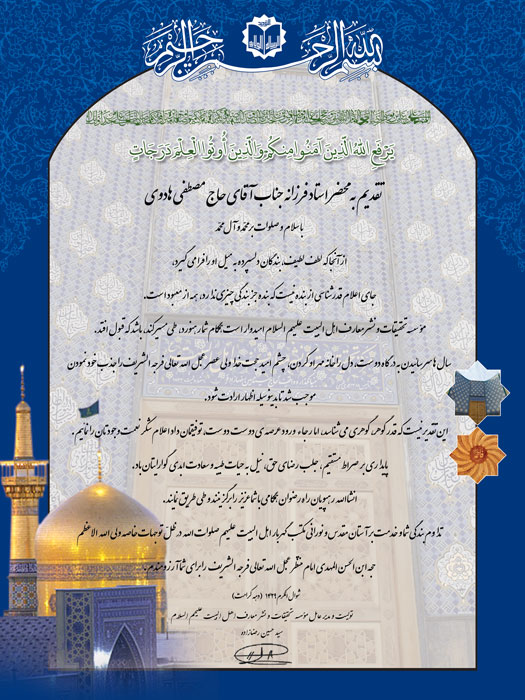 بسم الله الرحمن الرحیم
یَرْفَعِ اللهُ الَّذینَ آمَنُوا مِنْکُمْ وَالَّذینَ أُوتُوا الْعِلْمَ دَرَجَاتٍ
تقدیم به محضر استاد فرزانه جناب آقای حاج مصطفی هادوی
با سلام و صلوات بر محمد و آل محمد
از آنجا که لطف لطیف، بندگان دلسپرده به میل او را فرا می گیرد،
جای اعلام قدرشناسی از بنده نیست که بنده جز بندگی چیزی ندارد، همه از معبود است.
مؤسسه تحقیقات و نشر معارف اهل البیت علیهم السلام امیدوار است بگام شمار بهنورد، طی مسیر کند، باشد که قبول افتد.
سال ها سر ساییدن به درگاه دوست، دل را خانه مهر او کردن، چشم امید حجت خدا ولی عصر عجل الله تعالی فرجه الشریف را جذب خود نمودن
موجب شد تا بدینوسیله اظهار ارادت شود.
این تقدیر نیست که قدر گوهر، گوهری می شناسد، اما رجاء ورود عرصه ی دوست دوست، توفیقمان داد اعلام شکر نعمت وجودتان را نمایم.
پایداری بر صراط مستقیم، جلب رضای حق، نیل به حیات طیبه و سعادت ابدی گوارایتان باد.
انشاالله رهپویان راه رضوان بگامی با شما عزیز را برگزیننده طی طریق نمایند.
تداوم بندگی شما و خدمت بر آستان مقدس و نورانی مکتب گهربار اهل البیت علیهم صلوات الله در ظل توجهات خاصه ولی الله الاعظم
حجه ابن الحسن المهدی امام منتظر عجل الله تعالی فرجه الشریف را برای شما آرزومندم.
شوال المکرم ۱۴۲۹ (دهه کرامت)
تولیت و مدیر عامل مؤسسه تحقیقات و نشر معارف اهل البیت علیهم السلام
سید حسین رضازاده